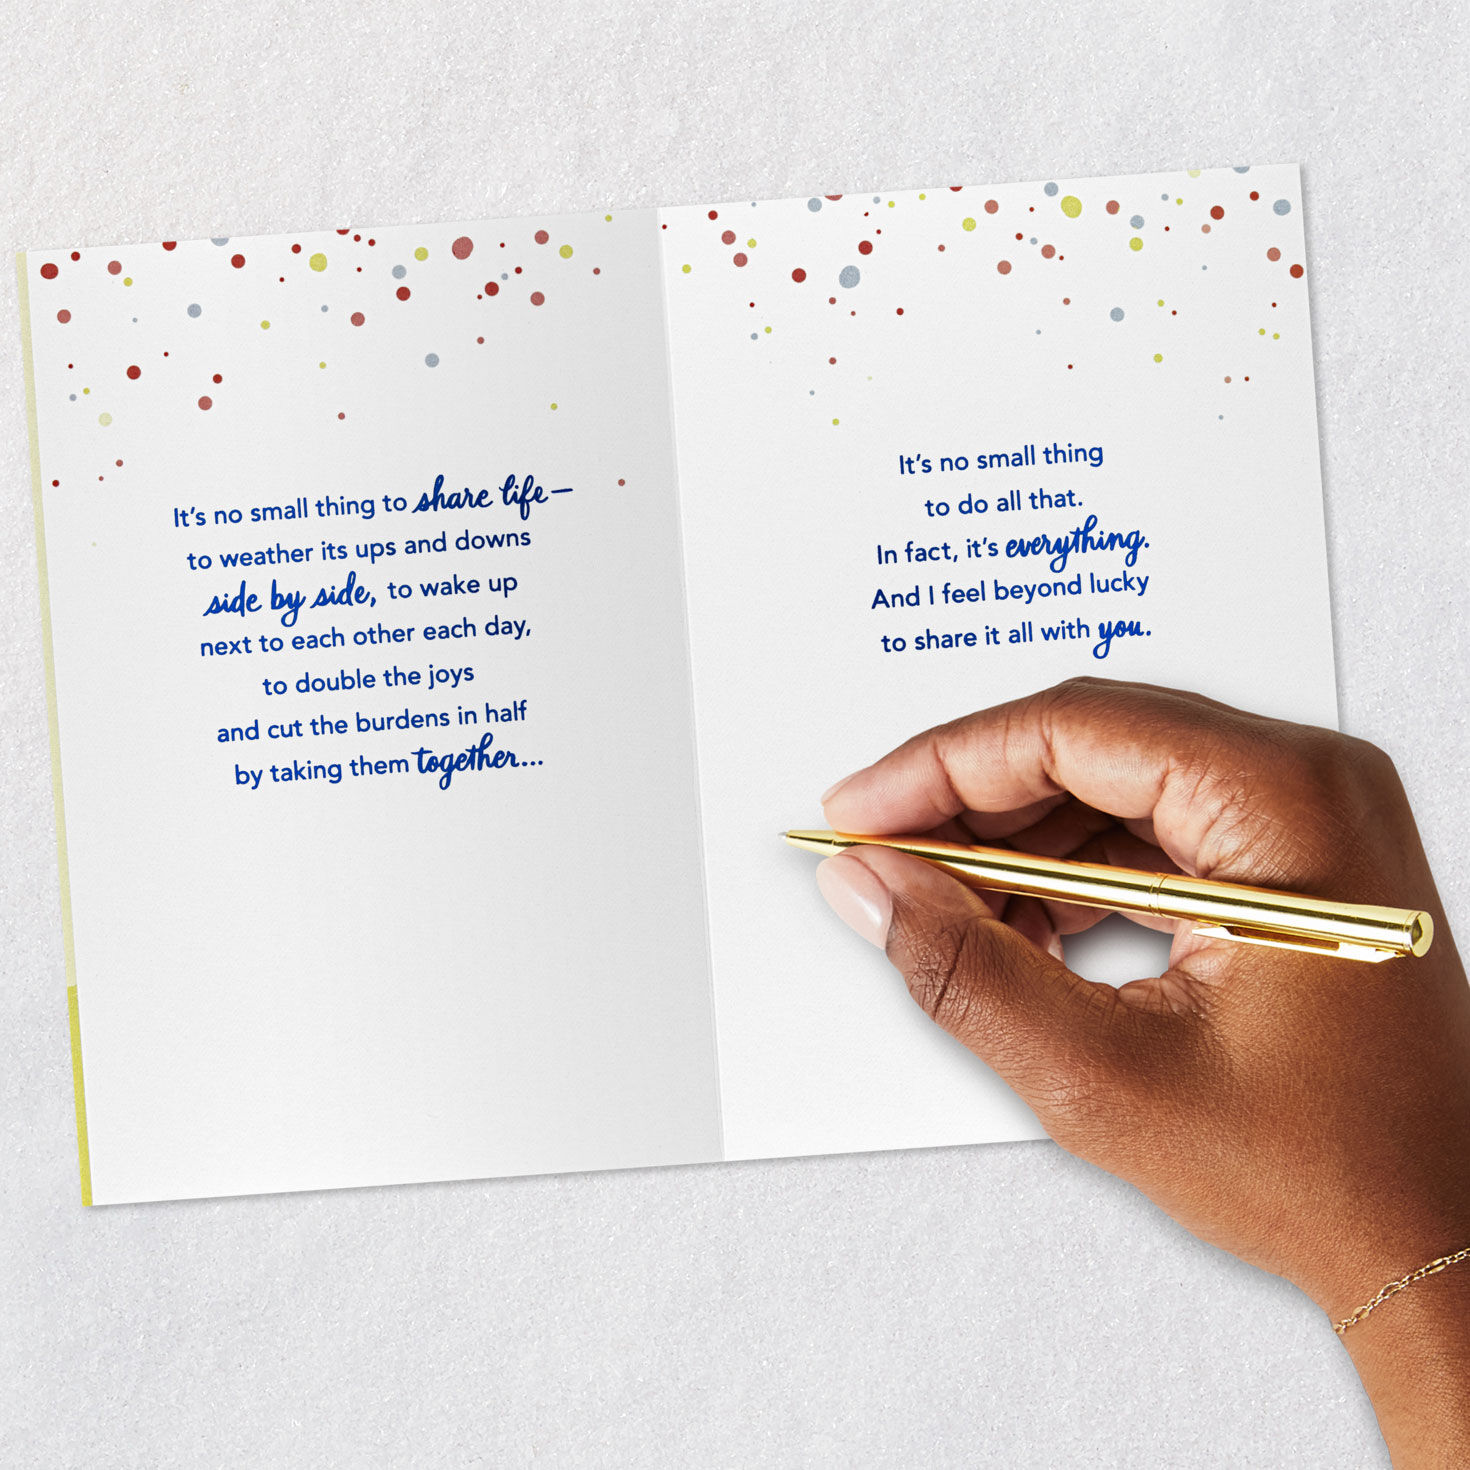 It's no small thing to share life—
to weather its ups and downs
side by side, to wake up
next to each other each day,
to double the joys
and cut the burdens in half
by taking them together...
It's no small thing
to do all that.
In fact, it's everything.
And I feel beyond lucky
to share it all with you.